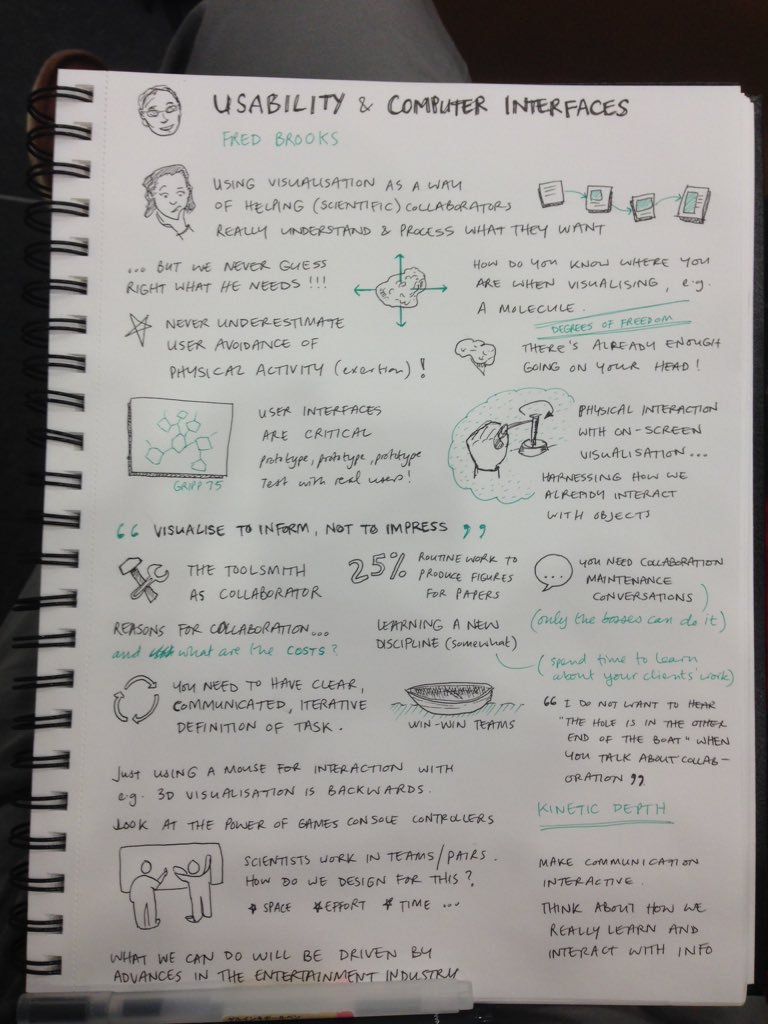 USABILITY & COMPUTER INTERFACES
FRED BROOKS
USING VISUALISATION AS A WAY
OF HELPING (SCIENTIFIC) COLLABORATORS
REALLY UNDERSTAND & PROCESS WHAT THEY WANT
... BUT WE NEVER GUESS
RIGHT WHAT HE NEEDS !!!
HOW DO YOU KNOW WHERE YOU
ARE WHEN VISUALISING, e.g.
A MOLECULE.
DEGREES OF FREEDOM
NEVER UNDERESTIMATE
USER AVOIDANCE OF
PHYSICAL ACTIVITY (exertion) !
THERE'S ALREADY ENOUGH
GOING ON YOUR HEAD !
GRIPP 75
USER INTERFACES
ARE CRITICAL
prototype, prototype, prototype
Test with real users!
PHYSICAL INTERACTION
WITH ON-SCREEN
VISUALISATION...
HARNESSING HOW WE
ALREADY INTERACT
WITH OBJECTS
“ VISUALISE TO INFORM, NOT TO IMPRESS ”
THE TOOLSMITH
AS COLLABORATOR
25%
ROUTINE WORK TO
PRODUCE FIGURES
FOR PAPERS
YOU NEED COLLABORATION
MAINTENANCE
CONVERSATIONS
(only the bosses can do it)
REASONS FOR COLLABORATION...
and what are the COSTS?
LEARNING A NEW
DISCIPLINE (somewhat)
(spend time to learn
about your clients' work)
YOU NEED TO HAVE CLEAR,
COMMUNICATED, ITERATIVE
DEFINITION OF TASK.
WIN-WIN TEAMS
“ I DO NOT WANT TO HEAR
"THE HOLE IS IN THE OTHER
END OF THE BOAT" WHEN
YOU TALK ABOUT COLLAB-
ORATION ”
JUST USING A MOUSE FOR INTERACTION WITH
e.g. 3D VISUALISATION IS BACKWARDS.
LOOK AT THE POWER OF GAMES CONSOLE CONTROLLERS
KINETIC DEPTH
SCIENTISTS WORK IN TEAMS/PAIRS.
HOW DO WE DESIGN FOR THIS?
* SPACE * EFFORT * TIME ...
MAKE COMMUNICATION
INTERACTIVE.
THINK ABOUT HOW WE
REALLY LEARN AND
INTERACT WITH INFO
WHAT WE CAN DO WILL BE DRIVEN BY
ADVANCES IN THE ENTERTAINMENT INDUSTRY